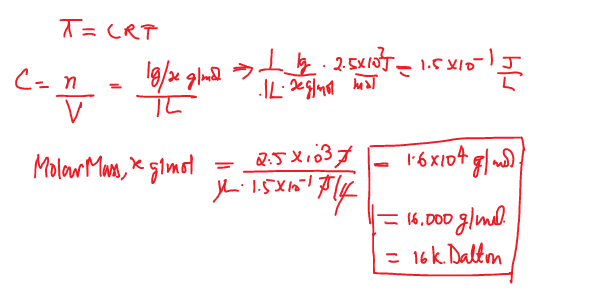 π = CRT
C = n/V = (1g/x g/mol)/1L ⇒ 1/1L · 1g/x g/mol · 2.5x10³J/mol = 1.5x10⁻¹ J/L
Molar Mass, x g/mol = 2.5x10³ J/(1L · 1.5x10⁻¹ J/L) = 1.6x10⁴ g/mol.
= 16,000 g/mol.
= 16 k.Dalton